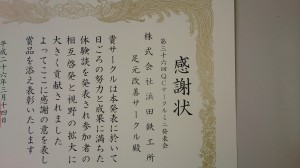 感謝状
第三十六回QCサークルミニ発表会
株式会社浜田鉄工所
足元改善サークル殿
貴サークルは本発表に於いて
日ごろの努力と成果に満ちた
体験談を発表され参加者の
相互啓発と視野の拡大に
大きく貢献されました
よってここに感謝の意を表し
賞品を添え表彰いたします
平成二十六年三月十四日